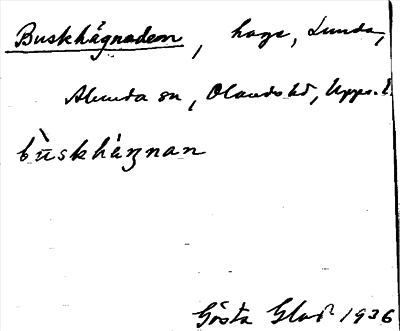 Buskhägnaden, hage, Lunda,
Alunda sn, Olands hd, Upps. l.
bùskhäŋnan
Gösta Glad 1936